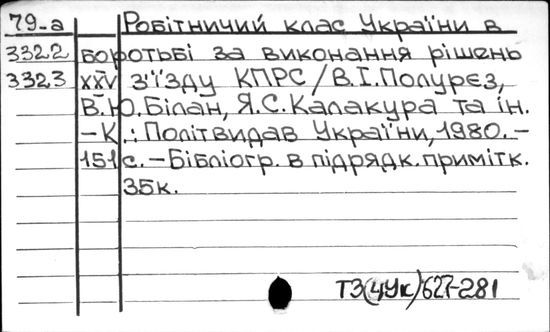 79-а Робітничий клас України в
3322 боротьбі за виконання рішень
3323 XXV з'їзду КПРС/В.І.Полурєз,
В.Ю.Білан, Я.С.Калакура та ін.
-К.: Політвидав України, 1980.-
151с.-Бібліогр. в підрядк. примітк.
35к.
Т3(4Ук)627-281